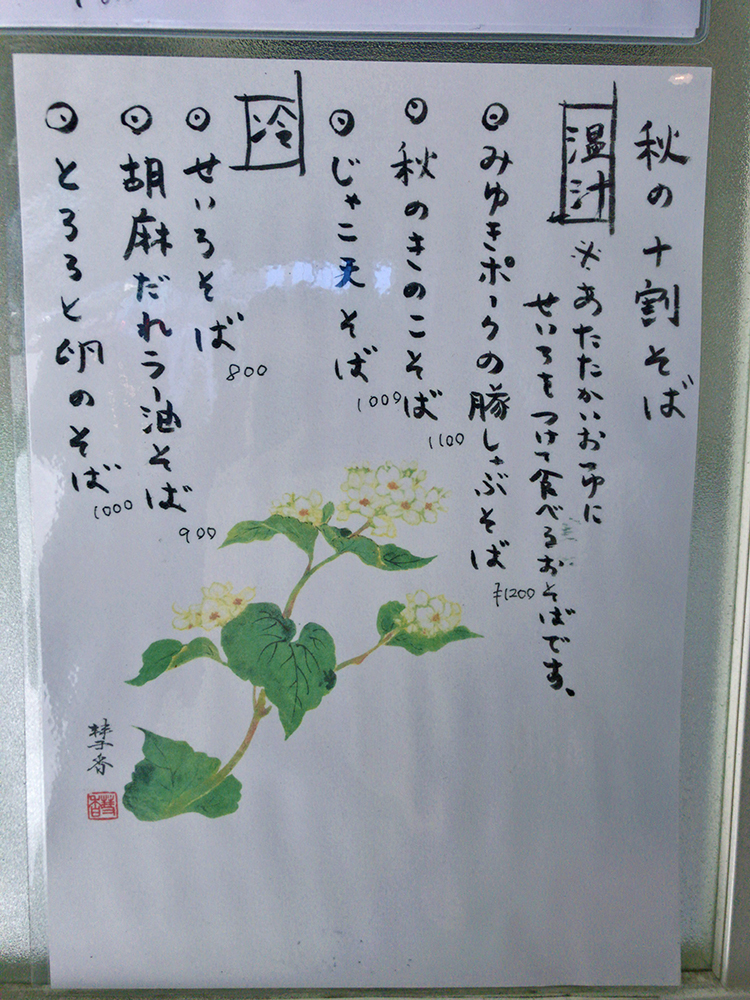 秋の十割そば
温汁
※あたたかいおつゆに
せいろをつけて食べるおそばです。
みゆきポークの豚しゃぶそば
¥1200
秋のきのこそば
1100
じゃこ天そば
1000
冷
せいろそば
800
胡麻だれラー油そば
900
とろろと卵のそば
1000